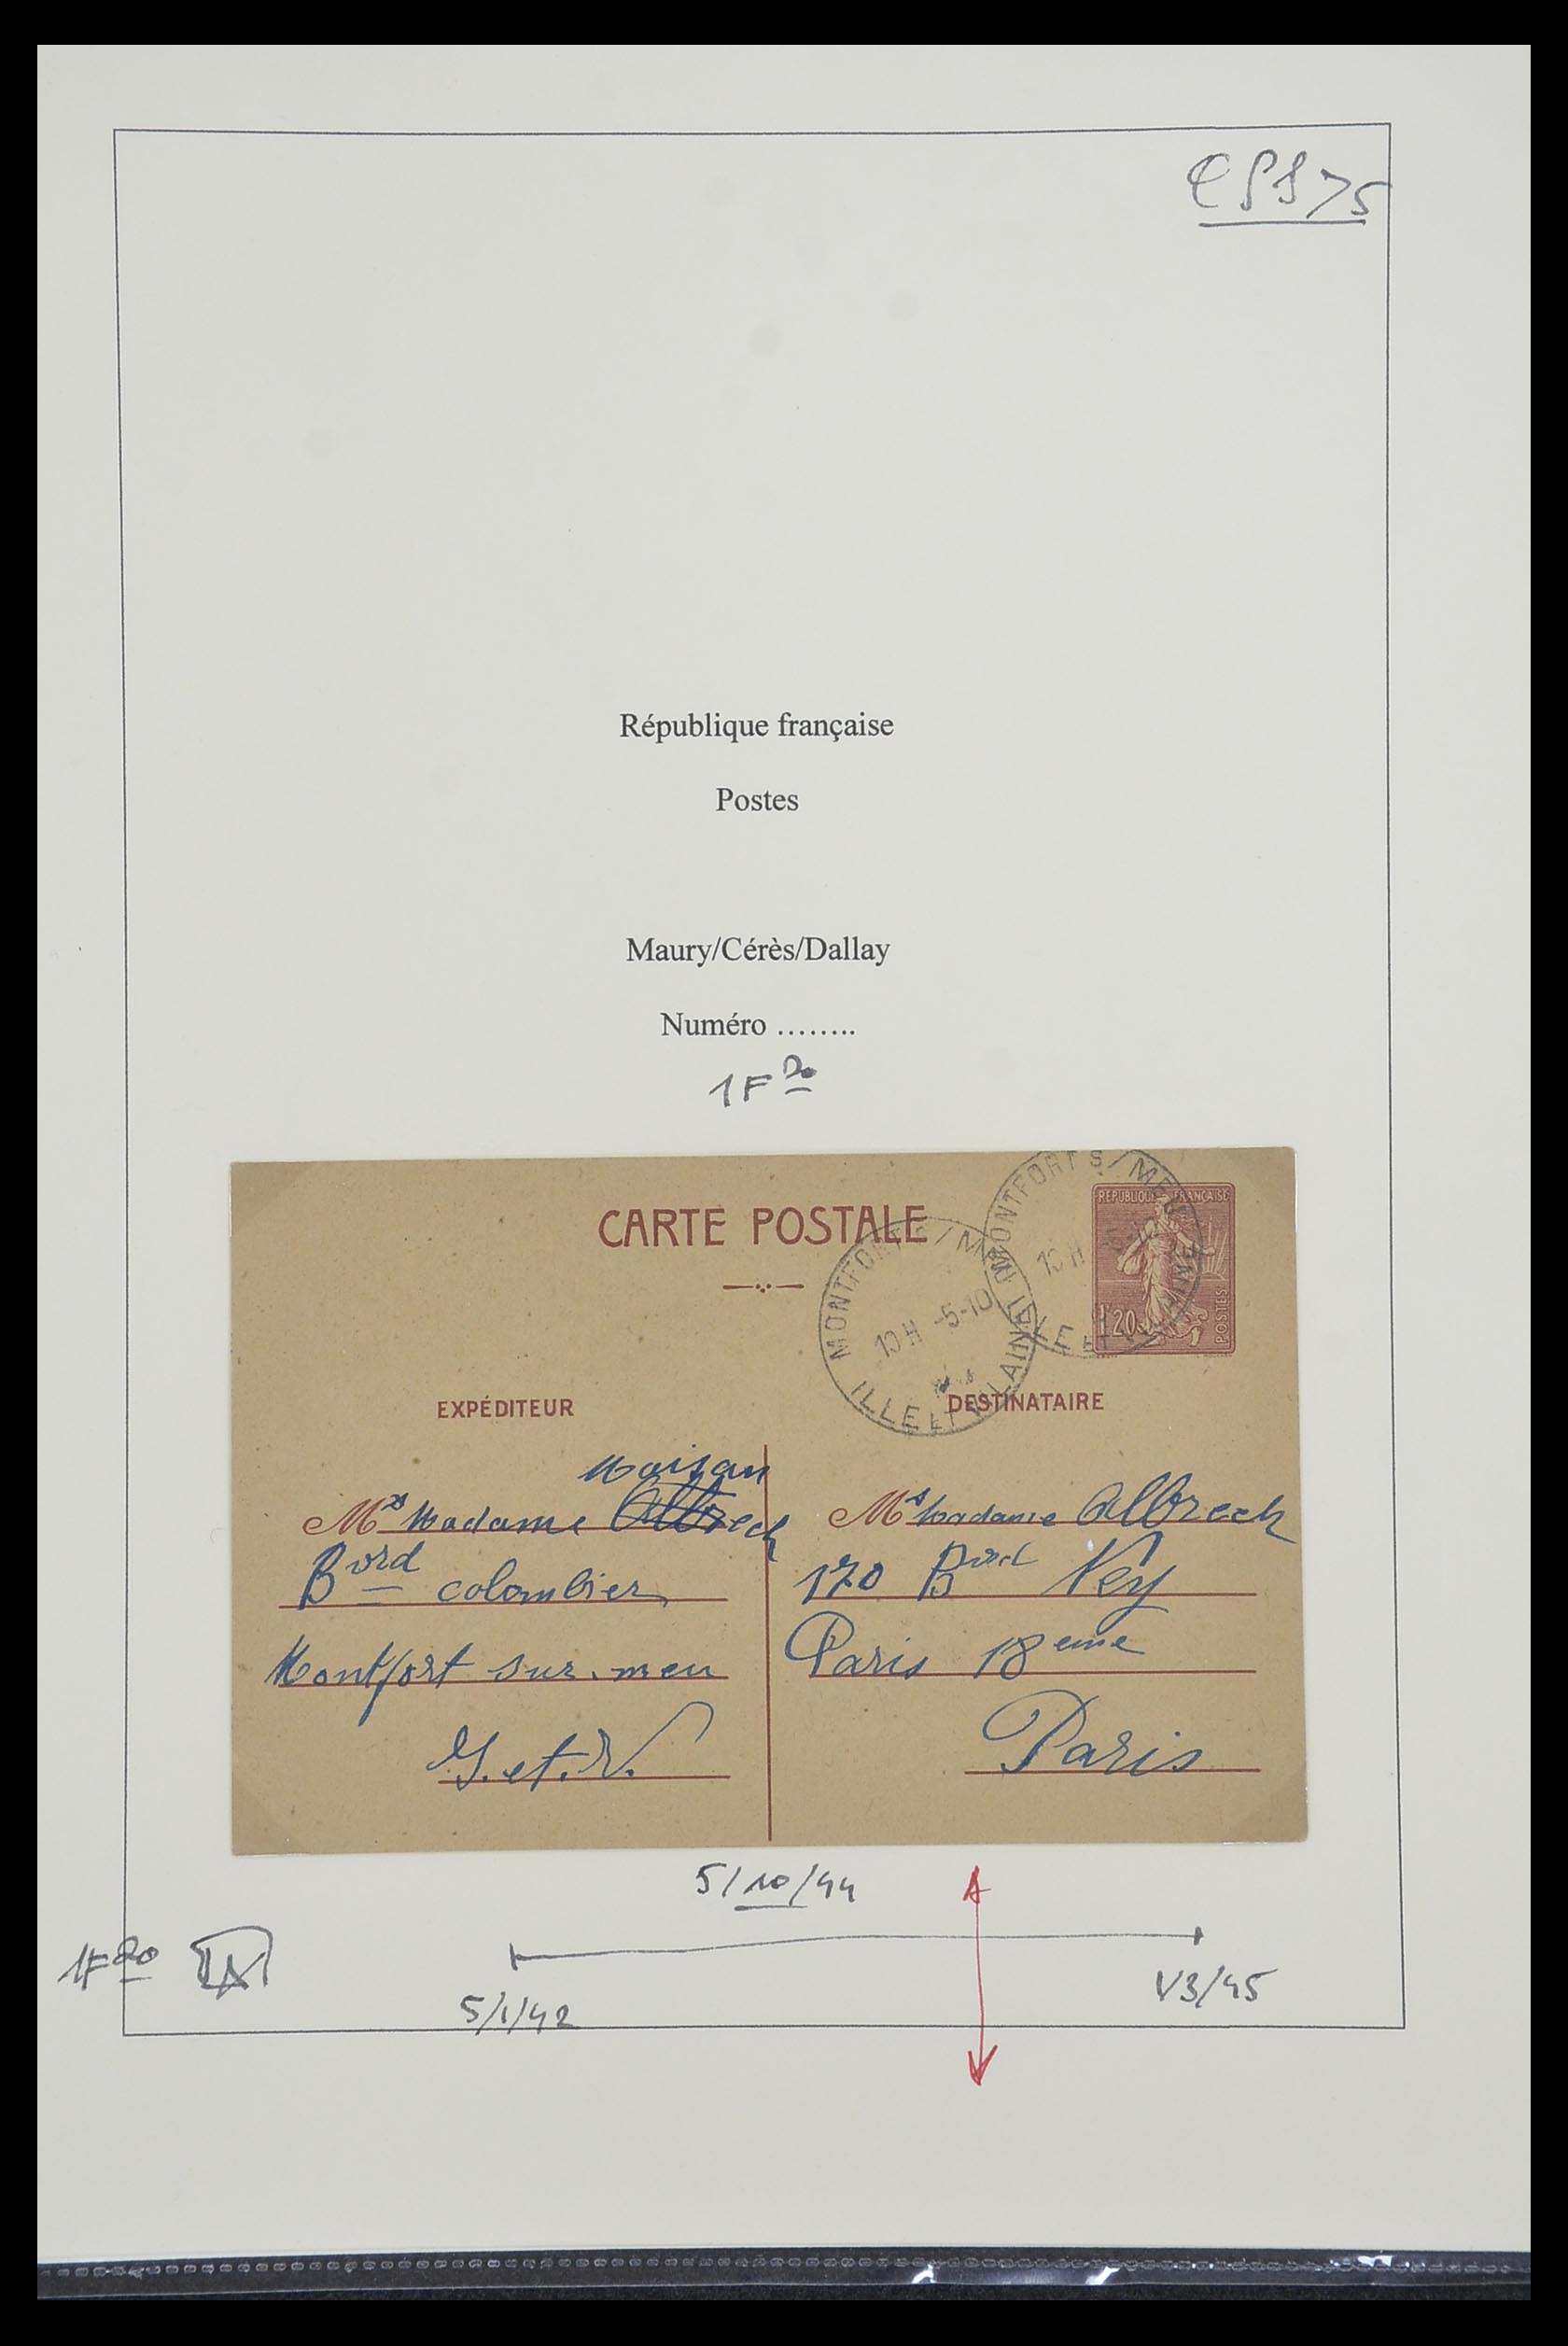 République française
Postes
Maury/Cérès/Dallay
Numéro ……..
1F 20
CARTE POSTALE
REPUBLIQUE FRANÇAISE
1F20
POSTES
MONTFORT S/ MEU
10 H -5-10
ILLE ET VILAINE
MONTFORT S/ MEU
10 H
ILLE ET VILAINE
EXPÉDITEUR
DESTINATAIRE
Moisan
M Madame Albrech
Bord colombier
Montfort sur. meu
I. et. V.
M Madame Albrech
170 Bord Ney
Paris 18eme
Paris
5/10/44
1F 20
5/1/42
1/3/45